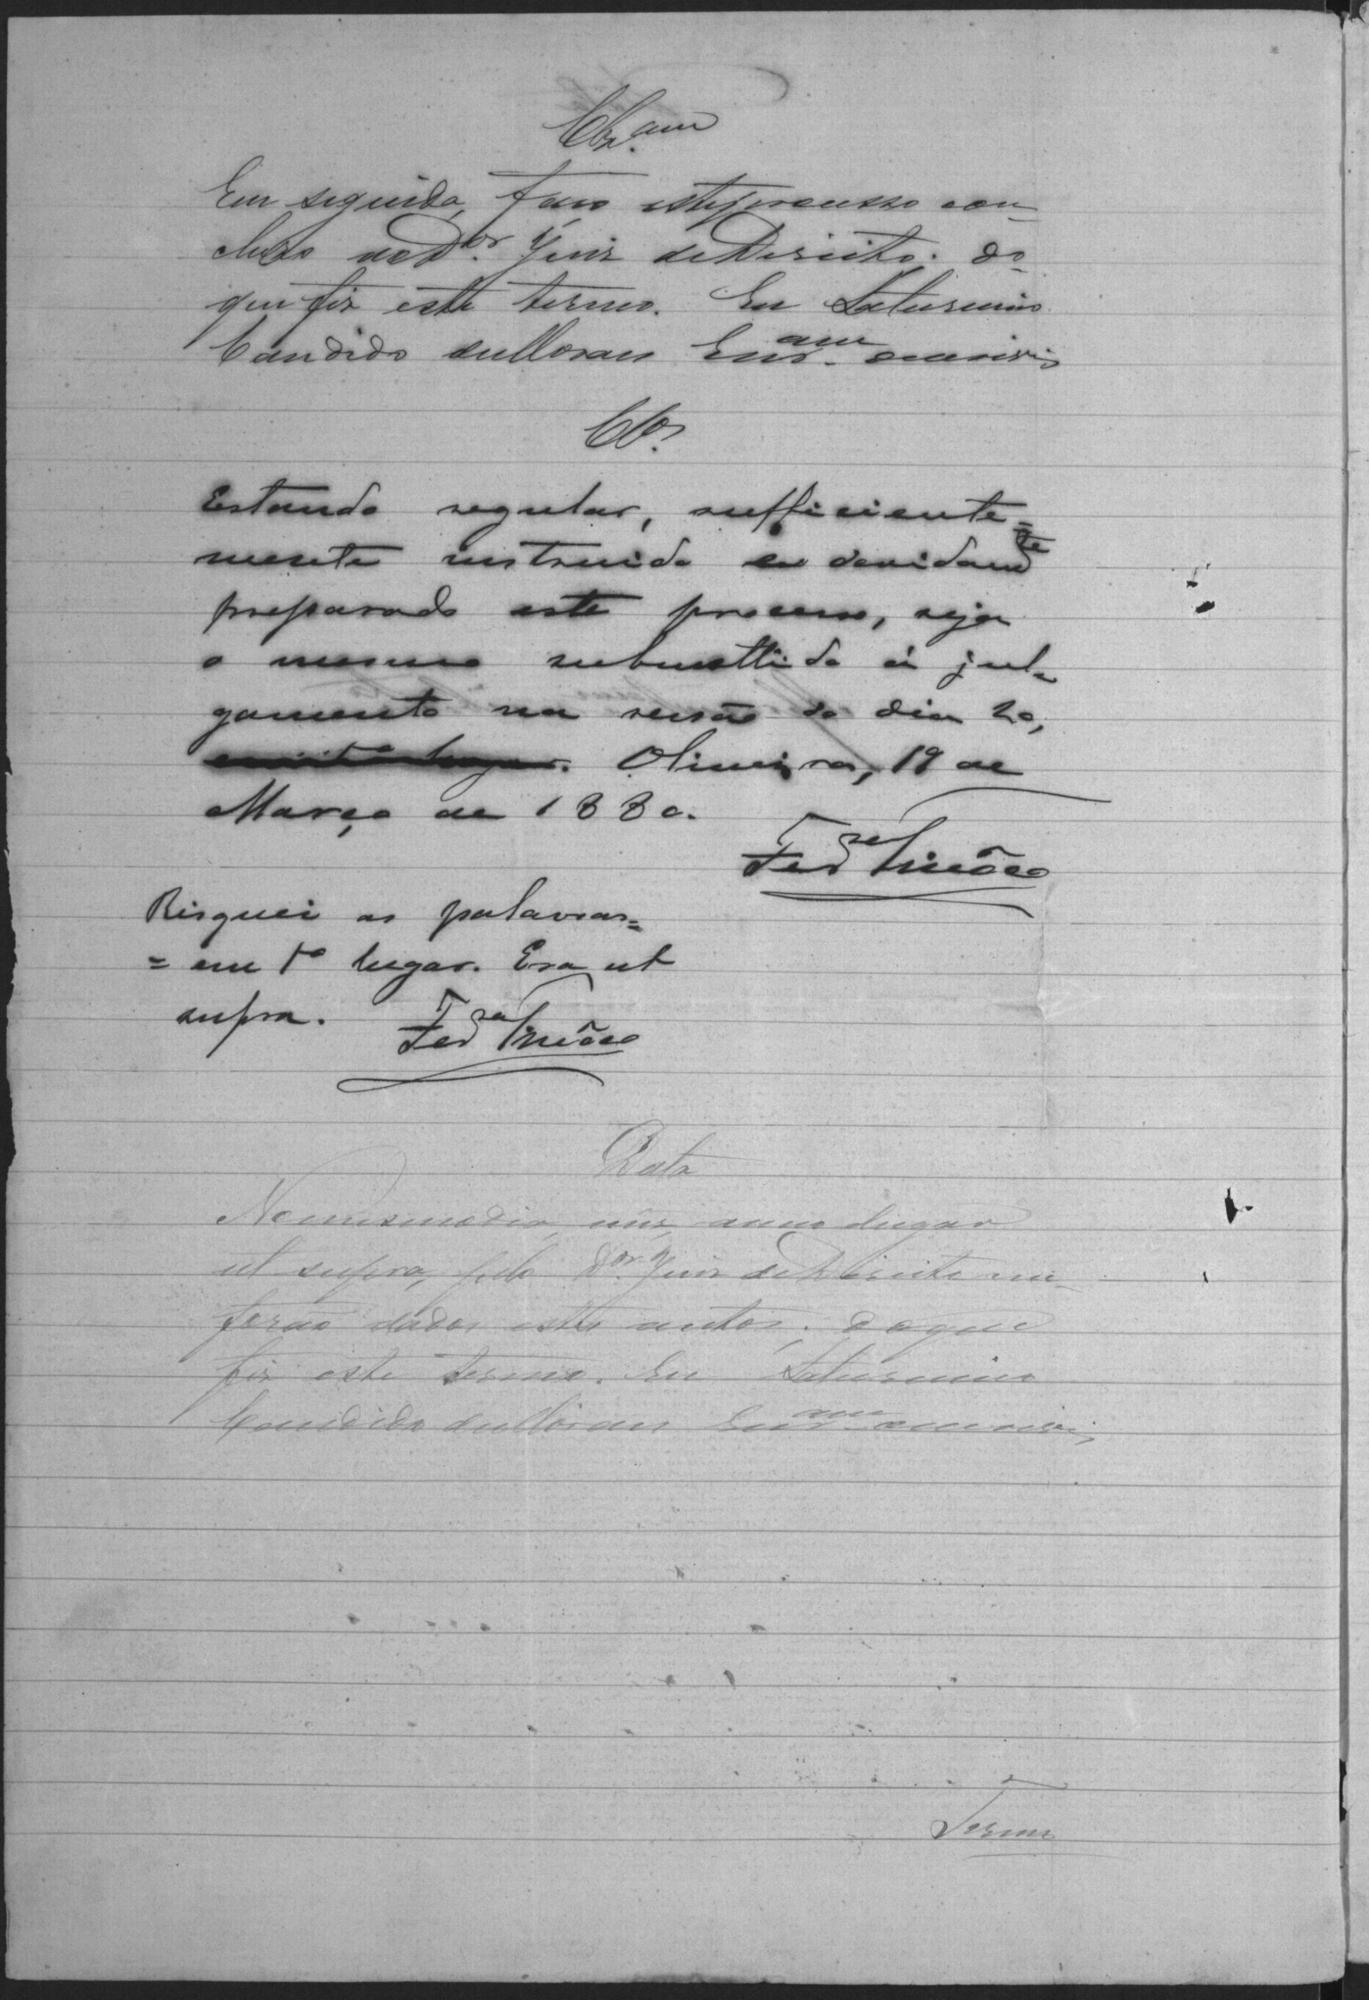 Clz.am
Em seguida, faço este processo con-
cluso ao D.or Juiz de Direito. do
que fiz este termo. Eu Saturnino
Candido de Moraes Escr.am escrivi
Cls.
Estando regular, sufficiente=
mente instruido e devidamte
preparado este processo, seja
o mesmo submettido á jul-
gamento na sessão do dia 20,
em 1º lugar. Oliveira, 19 de
Março de 1880.
Risquei as palavras=
= em 1º lugar. Era ut
supra.
Data
No mesmo dia, mês, anno e lugar
ut supra, pelo D.or Juiz de Direito me
forão dados estes autos; do que
fiz este termo. Eu Saturnino
Candido de Moraes Escr.am escrivi,
Termo